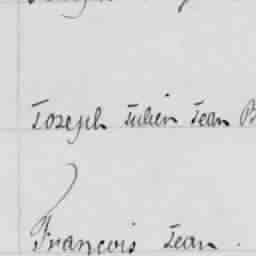 Joseph Julien Jean B
François Jean .